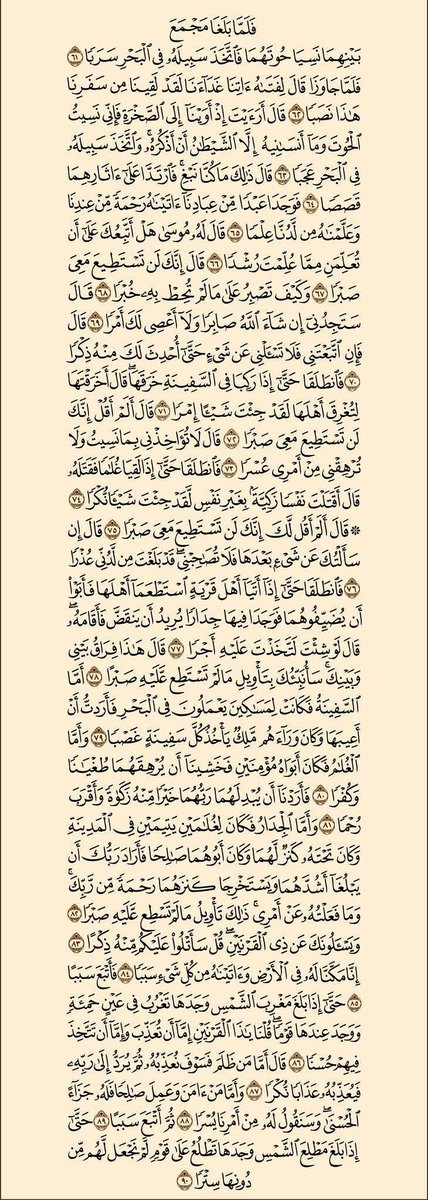 فَلَمَّا بَلَغَا مَجْمَعَ
بَيْنِهِمَا نَسِيَا حُوتَهُمَا فَٱتَّخَذَ سَبِيلَهُۥ فِي ٱلْبَحْرِ سَرَبًا ۝٦١
فَلَمَّا جَاوَزَا قَالَ لِفَتَىٰهُ ءَاتِنَا غَدَآءَنَا لَقَدْ لَقِينَا مِن سَفَرِنَا
هَٰذَا نَصَبًا ۝٦٢ قَالَ أَرَءَيْتَ إِذْ أَوَيْنَآ إِلَى ٱلصَّخْرَةِ فَإِنِّي نَسِيتُ
ٱلْحُوتَ وَمَآ أَنسَىٰنِيهُ إِلَّا ٱلشَّيْطَٰنُ أَنْ أَذْكُرَهُۥۚ وَٱتَّخَذَ سَبِيلَهُۥ
فِي ٱلْبَحْرِ عَجَبًا ۝٦٣ قَالَ ذَٰلِكَ مَا كُنَّا نَبْغِۚ فَٱرْتَدَّا عَلَىٰٓ ءَاثَارِهِمَا
قَصَصًا ۝٦٤ فَوَجَدَا عَبْدًا مِّنْ عِبَادِنَآ ءَاتَيْنَٰهُ رَحْمَةً مِّنْ عِندِنَا
وَعَلَّمْنَٰهُ مِن لَّدُنَّا عِلْمًا ۝٦٥ قَالَ لَهُۥ مُوسَىٰ هَلْ أَتَّبِعُكَ عَلَىٰٓ أَن
تُعَلِّمَنِ مِمَّا عُلِّمْتَ رُشْدًا ۝٦٦ قَالَ إِنَّكَ لَن تَسْتَطِيعَ مَعِيَ
صَبْرًا ۝٦٧ وَكَيْفَ تَصْبِرُ عَلَىٰ مَا لَمْ تُحِطْ بِهِۦ خُبْرًا ۝٦٨ قَالَ
سَتَجِدُنِيٓ إِن شَآءَ ٱللَّهُ صَابِرًا وَلَآ أَعْصِي لَكَ أَمْرًا ۝٦٩ قَالَ
فَإِنِ ٱتَّبَعْتَنِي فَلَا تَسْـَٔلْنِي عَن شَيْءٍ حَتَّىٰٓ أُحْدِثَ لَكَ مِنْهُ ذِكْرًا
۝٧٠ فَٱنطَلَقَا حَتَّىٰٓ إِذَا رَكِبَا فِي ٱلسَّفِينَةِ خَرَقَهَاۖ قَالَ أَخَرَقْتَهَا
لِتُغْرِقَ أَهْلَهَا لَقَدْ جِئْتَ شَيْـًٔا إِمْرًا ۝٧١ قَالَ أَلَمْ أَقُلْ إِنَّكَ
لَن تَسْتَطِيعَ مَعِيَ صَبْرًا ۝٧٢ قَالَ لَا تُؤَاخِذْنِي بِمَا نَسِيتُ وَلَا
تُرْهِقْنِي مِنْ أَمْرِي عُسْرًا ۝٧٣ فَٱنطَلَقَا حَتَّىٰٓ إِذَا لَقِيَا غُلَٰمًا فَقَتَلَهُۥ
قَالَ أَقَتَلْتَ نَفْسًا زَكِيَّةًۢ بِغَيْرِ نَفْسٍ لَّقَدْ جِئْتَ شَيْـًٔا نُّكْرًا ۝٧٤
۞ قَالَ أَلَمْ أَقُل لَّكَ إِنَّكَ لَن تَسْتَطِيعَ مَعِيَ صَبْرًا ۝٧٥ قَالَ إِن
سَأَلْتُكَ عَن شَيْءٍۭ بَعْدَهَا فَلَا تُصَٰحِبْنِيۖ قَدْ بَلَغْتَ مِن لَّدُنِّي عُذْرًا
۝٧٦ فَٱنطَلَقَا حَتَّىٰٓ إِذَآ أَتَيَآ أَهْلَ قَرْيَةٍ ٱسْتَطْعَمَآ أَهْلَهَا فَأَبَوْا۟
أَن يُضَيِّفُوهُمَا فَوَجَدَا فِيهَا جِدَارًا يُرِيدُ أَن يَنقَضَّ فَأَقَامَهُۥۖ
قَالَ لَوْ شِئْتَ لَتَّخَذْتَ عَلَيْهِ أَجْرًا ۝٧٧ قَالَ هَٰذَا فِرَاقُ بَيْنِي
وَبَيْنِكَۚ سَأُنَبِّئُكَ بِتَأْوِيلِ مَا لَمْ تَسْتَطِع عَّلَيْهِ صَبْرًا ۝٧٨ أَمَّا
ٱلسَّفِينَةُ فَكَانَتْ لِمَسَٰكِينَ يَعْمَلُونَ فِي ٱلْبَحْرِ فَأَرَدتُّ أَنْ
أَعِيبَهَا وَكَانَ وَرَآءَهُم مَّلِكٌ يَأْخُذُ كُلَّ سَفِينَةٍ غَصْبًا ۝٧٩ وَأَمَّا
ٱلْغُلَٰمُ فَكَانَ أَبَوَاهُ مُؤْمِنَيْنِ فَخَشِينَآ أَن يُرْهِقَهُمَا طُغْيَٰنًا
وَكُفْرًا ۝٨٠ فَأَرَدْنَآ أَن يُبْدِلَهُمَا رَبُّهُمَا خَيْرًا مِّنْهُ زَكَوٰةً وَأَقْرَبَ
رُحْمًا ۝٨١ وَأَمَّا ٱلْجِدَارُ فَكَانَ لِغُلَٰمَيْنِ يَتِيمَيْنِ فِي ٱلْمَدِينَةِ
وَكَانَ تَحْتَهُۥ كَنزٌ لَّهُمَا وَكَانَ أَبُوهُمَا صَٰلِحًا فَأَرَادَ رَبُّكَ أَن
يَبْلُغَآ أَشُدَّهُمَا وَيَسْتَخْرِجَا كَنزَهُمَا رَحْمَةً مِّن رَّبِّكَۚ
وَمَا فَعَلْتُهُۥ عَنْ أَمْرِيۚ ذَٰلِكَ تَأْوِيلُ مَا لَمْ تَسْطِع عَّلَيْهِ صَبْرًا ۝٨٢
وَيَسْـَٔلُونَكَ عَن ذِي ٱلْقَرْنَيْنِۖ قُلْ سَأَتْلُوا۟ عَلَيْكُم مِّنْهُ ذِكْرًا ۝٨٣
إِنَّا مَكَّنَّا لَهُۥ فِي ٱلْأَرْضِ وَءَاتَيْنَٰهُ مِن كُلِّ شَيْءٍ سَبَبًا ۝٨٤ فَأَتْبَعَ سَبَبًا
۝٨٥ حَتَّىٰٓ إِذَا بَلَغَ مَغْرِبَ ٱلشَّمْسِ وَجَدَهَا تَغْرُبُ فِي عَيْنٍ حَمِئَةٍ
وَوَجَدَ عِندَهَا قَوْمًاۗ قُلْنَا يَٰذَا ٱلْقَرْنَيْنِ إِمَّآ أَن تُعَذِّبَ وَإِمَّآ أَن تَتَّخِذَ
فِيهِمْ حُسْنًا ۝٨٦ قَالَ أَمَّا مَن ظَلَمَ فَسَوْفَ نُعَذِّبُهُۥ ثُمَّ يُرَدُّ إِلَىٰ رَبِّهِۦ
فَيُعَذِّبُهُۥ عَذَابًا نُّكْرًا ۝٨٧ وَأَمَّا مَنْ ءَامَنَ وَعَمِلَ صَٰلِحًا فَلَهُۥ جَزَآءً
ٱلْحُسْنَىٰۖ وَسَنَقُولُ لَهُۥ مِنْ أَمْرِنَا يُسْرًا ۝٨٨ ثُمَّ أَتْبَعَ سَبَبًا ۝٨٩ حَتَّىٰٓ
إِذَا بَلَغَ مَطْلِعَ ٱلشَّمْسِ وَجَدَهَا تَطْلُعُ عَلَىٰ قَوْمٍ لَّمْ نَجْعَل لَّهُم مِّن
دُونِهَا سِتْرًا ۝٩٠